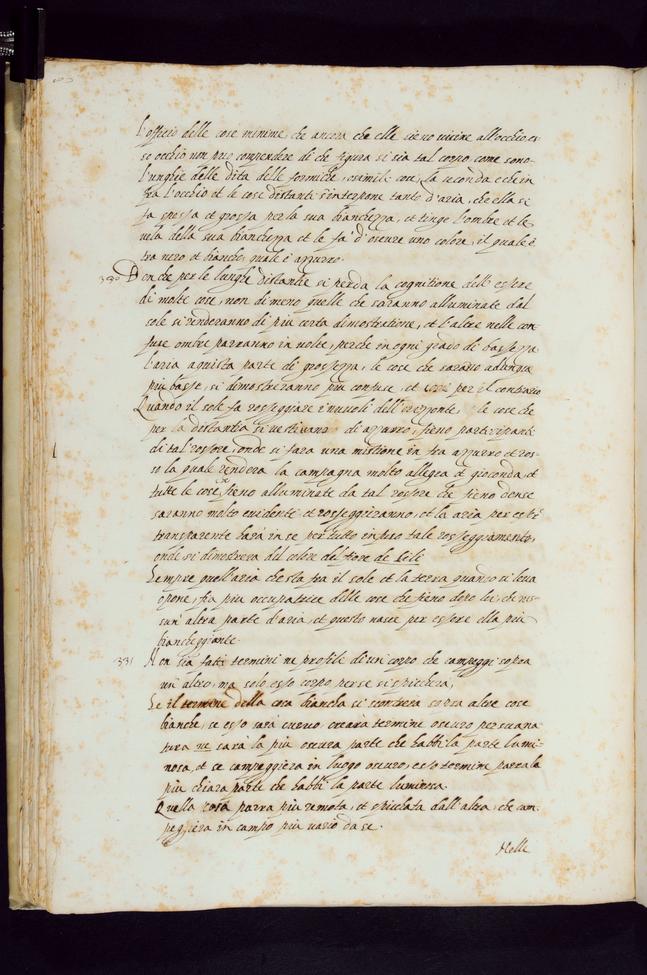 l'officio delle cose minime che ancora che elle sieno vicine all'occhio es-
so occhio non puo comprendere di che figura si sia tal corpo come sono
l'unghie delle dita delle formiche, e simili cose, la seconda e che in
fra l'occhio et le cose distanti s'interpone tanto d'aria, che ella si
fa spessa et grossa per la sua bianchezza, et tinge l'ombre et le
vela della sua bianchezza et le fa d'oscure uno colore, il quale è
tra nero et bianco, quale è azzurro.
330 Ben che per le lunghe distantie si perda la cognitione dell'essere
di molte cose, non di meno quelle che saranno alluminate dal
sole si renderanno di più certa dimostratione, et l'altre nelle con
fuse ombre parranno in volte, perche in ogni grado di bassezza
l'aria aquista parte di grossezza, le cose che saranno adunque
più basse, si dimostreranno più confuse, et così per il contrario
Quando il sole fa rosseggiare i nuvoli dell'orizzonte, le cose che
per la distantia si vestivano di azzurro, fieno participante
di tal rossore, onde si fara una mistione in fra azzurro et ros-
so la quale rendera la campagna molto allegra et gioconda, et
tutte le cose che fieno alluminate da tal rossore che fieno dense
saranno molto evidente et rosseggieranno, et la aria per esser
transparente harà in se per tutto infuso tale rosseggiamento,
onde si dimostrera del colore del fiore de Gigli
Sempre quell'aria che sta fra il sole et la terra quando si leva
o pone, fia più occupatrice delle cose che fieno dopo lei, che nes-
sun'altra parte d'aria, et questo nasce per essere ella più
biancheggiante.
331 Non sia fatti termini ne profili di un corpo che campeggi sopra
un'altro, ma solo esso corpo per se si spicchera,
Se il termine della cosa biancha si scontrera sopra altre cose
bianche, se esso sarà curvo, crearà termine oscuro per sua na
tura ne sarà la più oscura parte che habbi la parte lumi-
nosa, et se campeggiera in luogo oscuro, esso termine parrà la
più chiara parte che habbi la parte luminosa.
Quella cosa parra più remota, et spiccata dall'altra, che cam-
peggiera in campo più vario da se.
Nelle